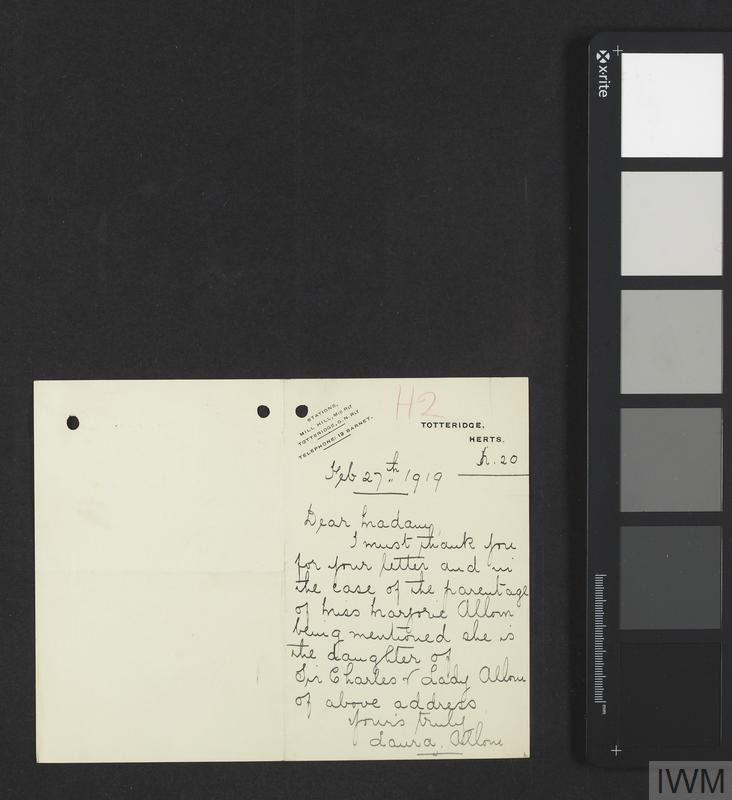 x·rite
H2
STATIONS,
MILL HILL, MID. RLY
TOTTERIDGE, G. N. RLY
TELEPHONE: 12 BARNET.
TOTTERIDGE,
HERTS.
N.20
Feb 27th 1919
Dear Madam,
I must thank you
for your letter and in
the case of the parentage
of Miss Marjorie Allom
being mentioned she is
the daughter of
Sir Charles & Lady Allom
of above address
yours truly
Laura. Allom
mm
IWM